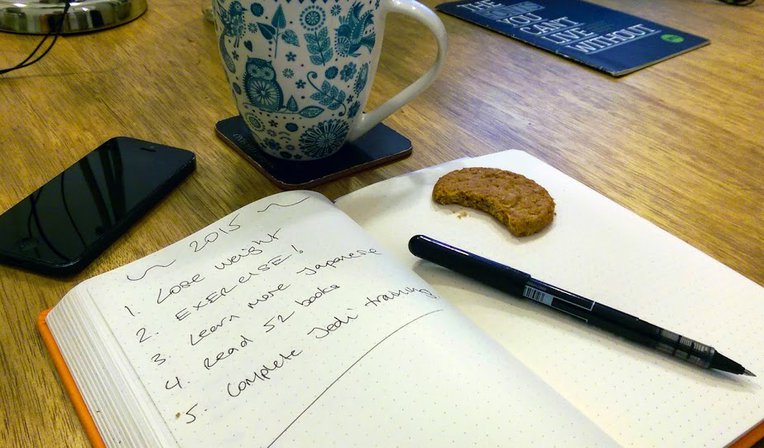 THE
YOU
CAN'T
LIVE
WITHOUT
~ 2015 ~
1. Lose weight
2. EXERCISE!
3. Learn more Japanese
4. Read 52 books
5. Complete Jedi training